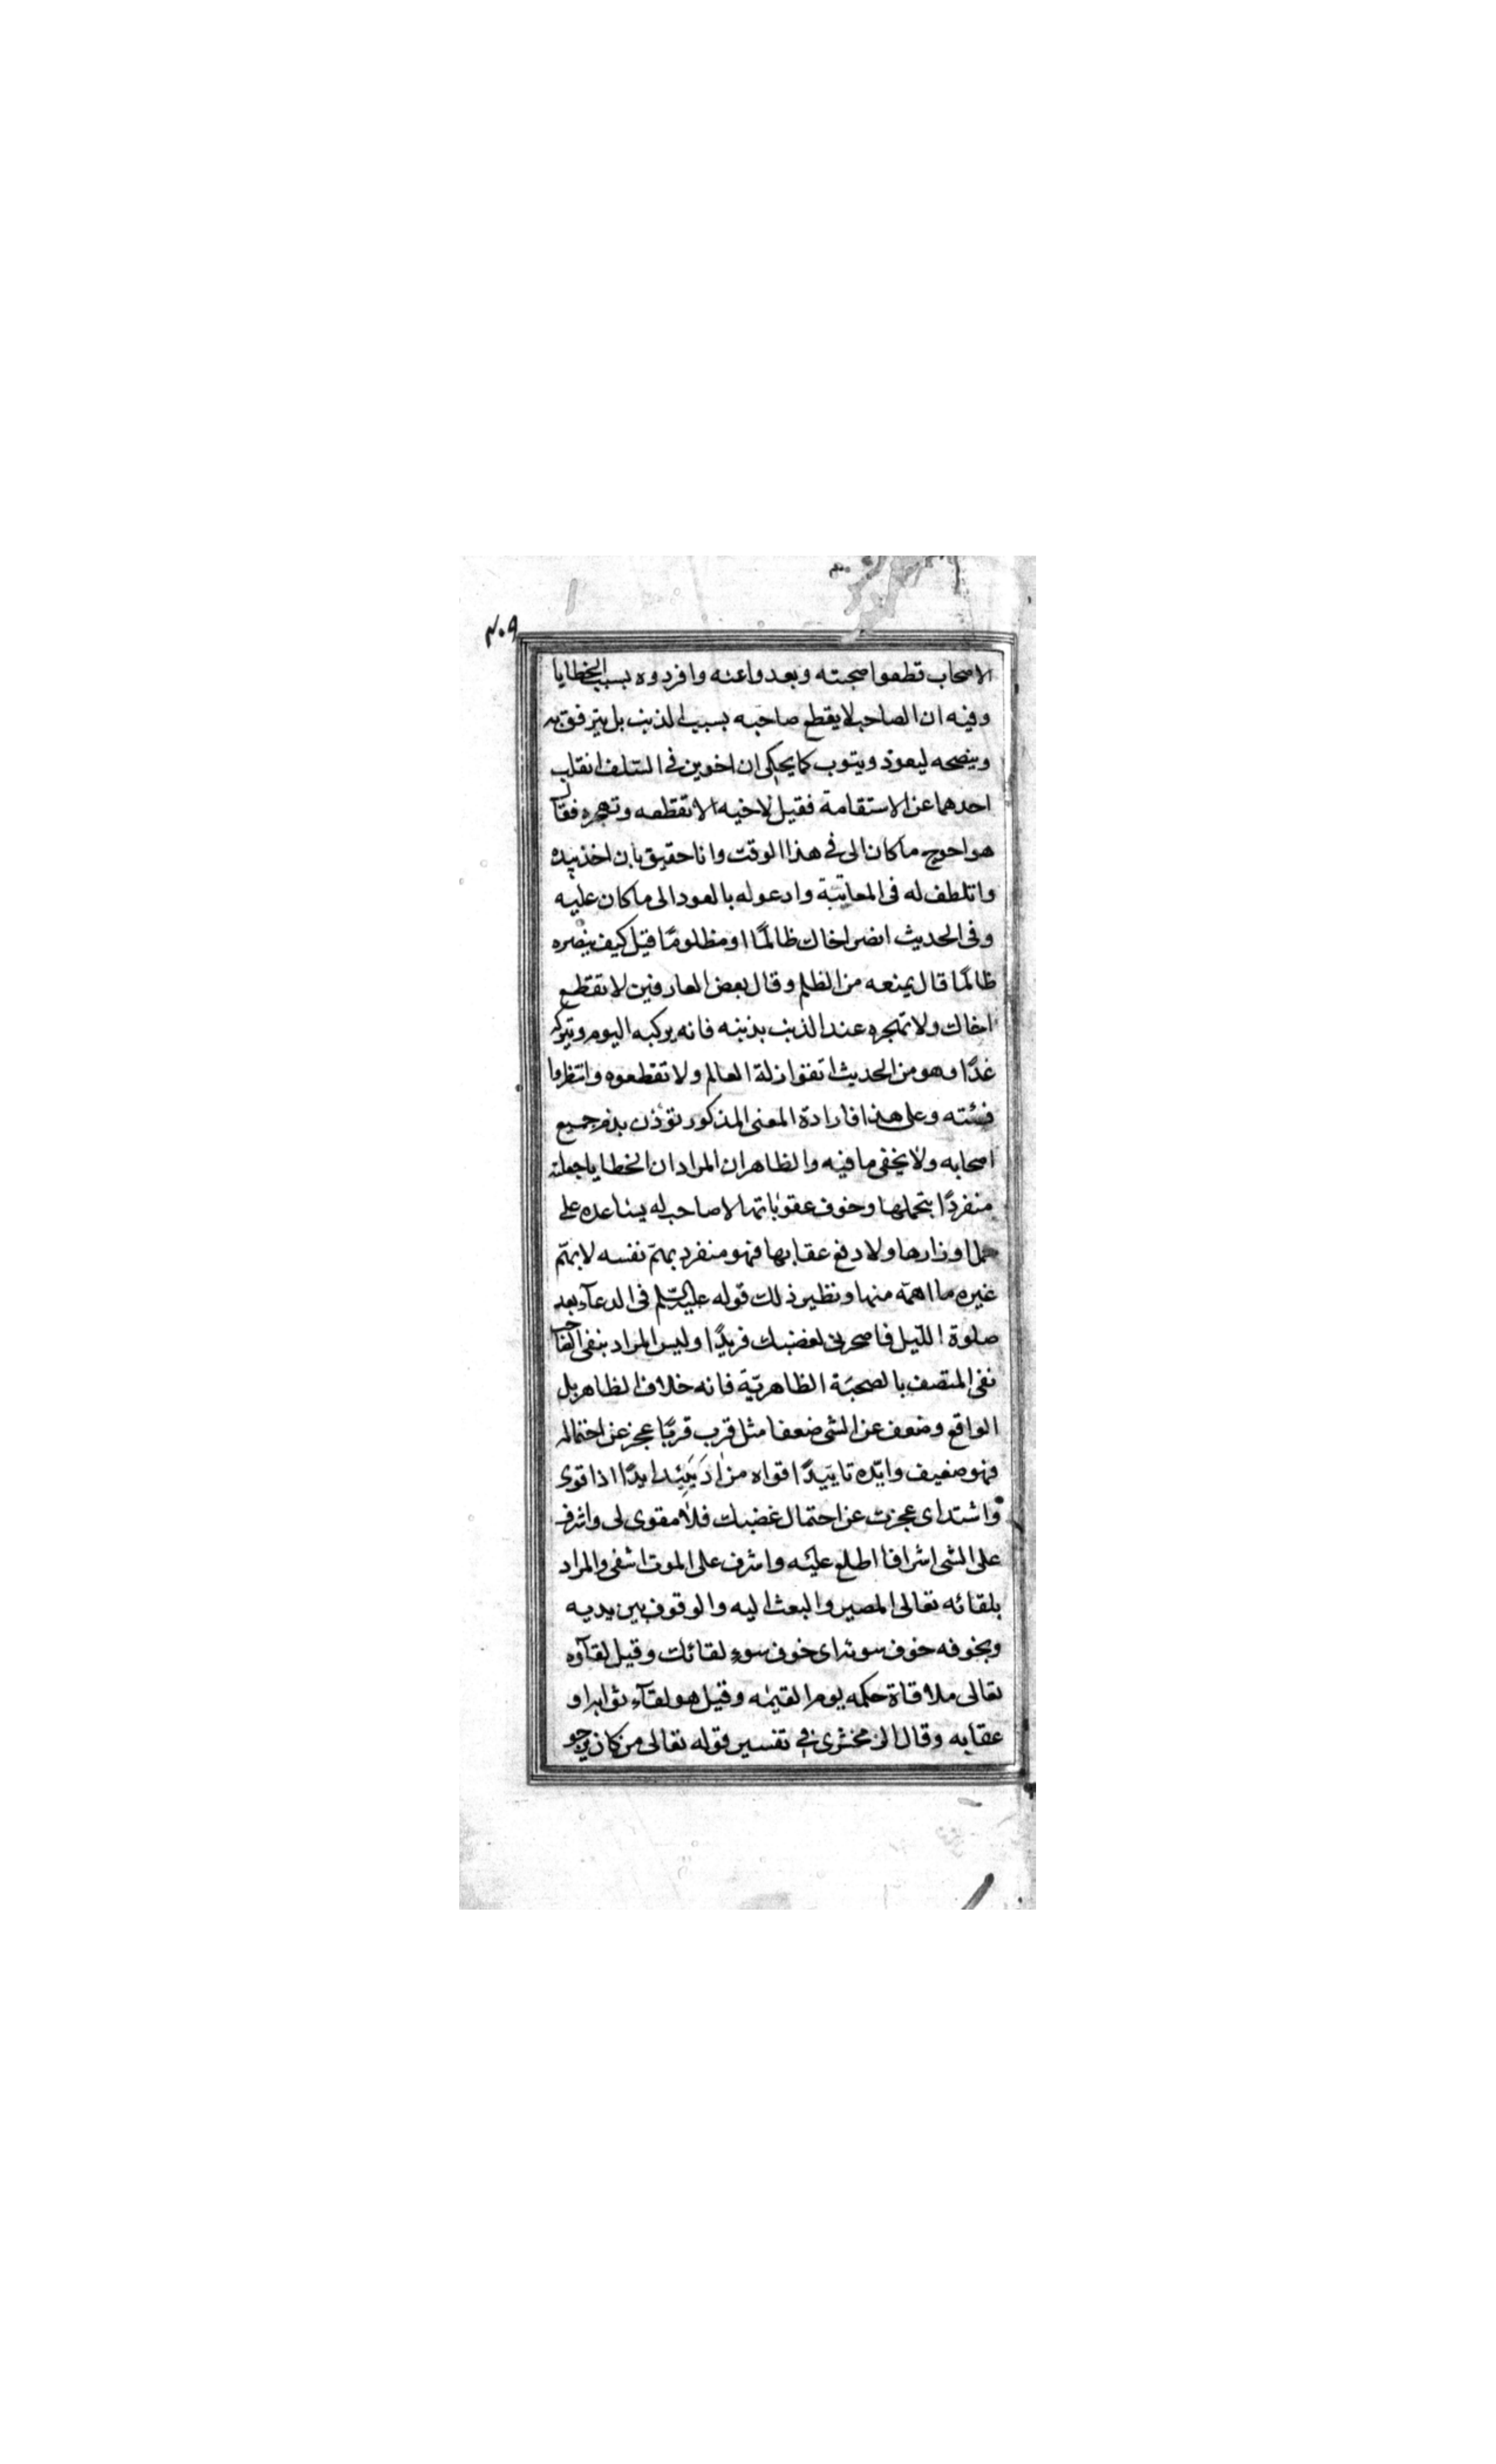 ٢٠٩
الاصحاب قطعوا صحبته وبعدوا عنه وافردوه بسبب الخطايا
وفيه ان الصاحب لا يقطع صاحبه بسبب الذنب بل يترفق به
وينصحه ليعود ويتوب كما يحكى ان اخوين فى السلف انقلب
احدهما عن الاستقامة فقيل لاخيه الا تقطعه وتهجره فقال
هو احوج ما كان الى فى هذا الوقت وانا حقيق بان اخذ بيده
واتلطف له فى المعاتبة وادعو له بالعود الى ما كان عليه
وفى الحديث انصر اخاك ظالمًا او مظلومًا قيل كيف ينصره
ظالمًا قال يمنعه من الظلم وقال بعض العارفين لا تقطع
اخاك ولا تهجره عند الذنب بذنبه فانه يركبه اليوم ويتركه
غدًا وهو من الحديث اتقوا زلة العالم ولا تقطعوه وانتظروا
فئته وعلى هذا فارادة المعنى المذكور تؤذن بذم جميع
اصحابه ولا يخفى ما فيه والظاهر ان المراد ان الخطايا جعلته
منفردًا بتحملها وخوف عقوباتها لا صاحب له يساعده على
حمل اوزارها ولا دفع عقابها فهو منفرد يهتم نفسه لا يهتم
غيره ما اهمه منها ونظير ذلك قوله عليه السلم فى الدعآء بعد
صلوة الليل فاصحرنى لغضبك فريدًا وليس المراد بنفى الصاحب
نفى المتصف بالصحبة الظاهرية فانه خلاف الظاهر بل
الواقع وضعف عن الشى ضعفا مثل قرب قربًا عجز عن احتماله
فهو ضعيف وايّده تاييدًا قواه من اد يئيد ايدًا اذا قوى
واشتد اى عجزت عن احتمال غضبك فلا مقوى لى واشرف
على الشى اشرافا اطلع عليه واشرف على الموت اشفى والمراد
بلقائه تعالى المصير والبعث اليه والوقوف بين يديه
وبخوفه خوف سوئه اى خوف سوء لقائك وقيل لقآؤه
تعالى ملاقاة حكمه يوم القيمه وقيل هو لقآء ثوابه او
عقابه وقال الزمخشرى فى تفسير قوله تعالى من كان يرجو